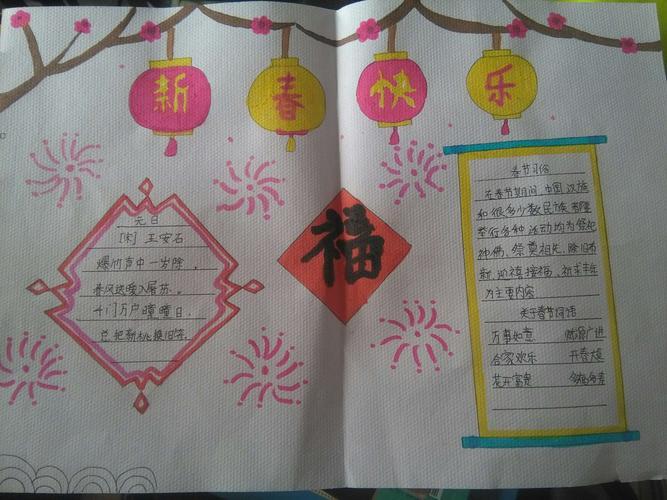 新春快乐
元日
[宋] 王安石
爆竹声中一岁除，
春风送暖入屠苏。
千门万户曈曈日，
总把新桃换旧符。
福
春节习俗
在春节期间，中国汉族
和很多少数民族都要
举行各种活动均为祭祀
神佛、祭奠祖先、除旧布
新、迎禧接福、祈求丰年
为主要内容
关于春节词语
万事如意 财源广进
合家欢乐 开春大
花开富贵